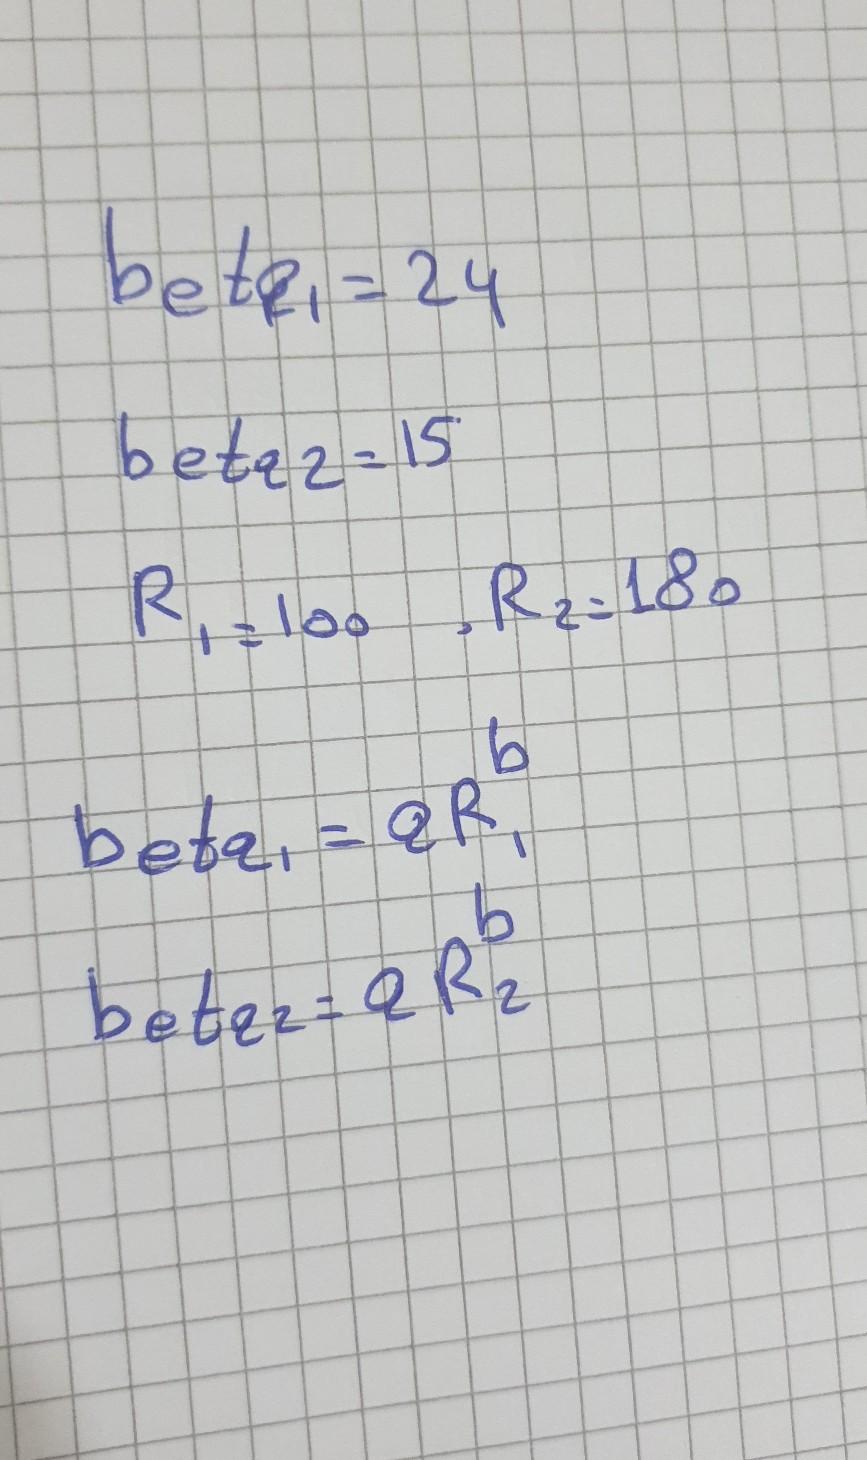 beta₁ = 24
beta₂ = 15
R₁ = 100 , R₂ = 180
beta₁ = aR₁ᵇ
beta₂ = aR₂ᵇ